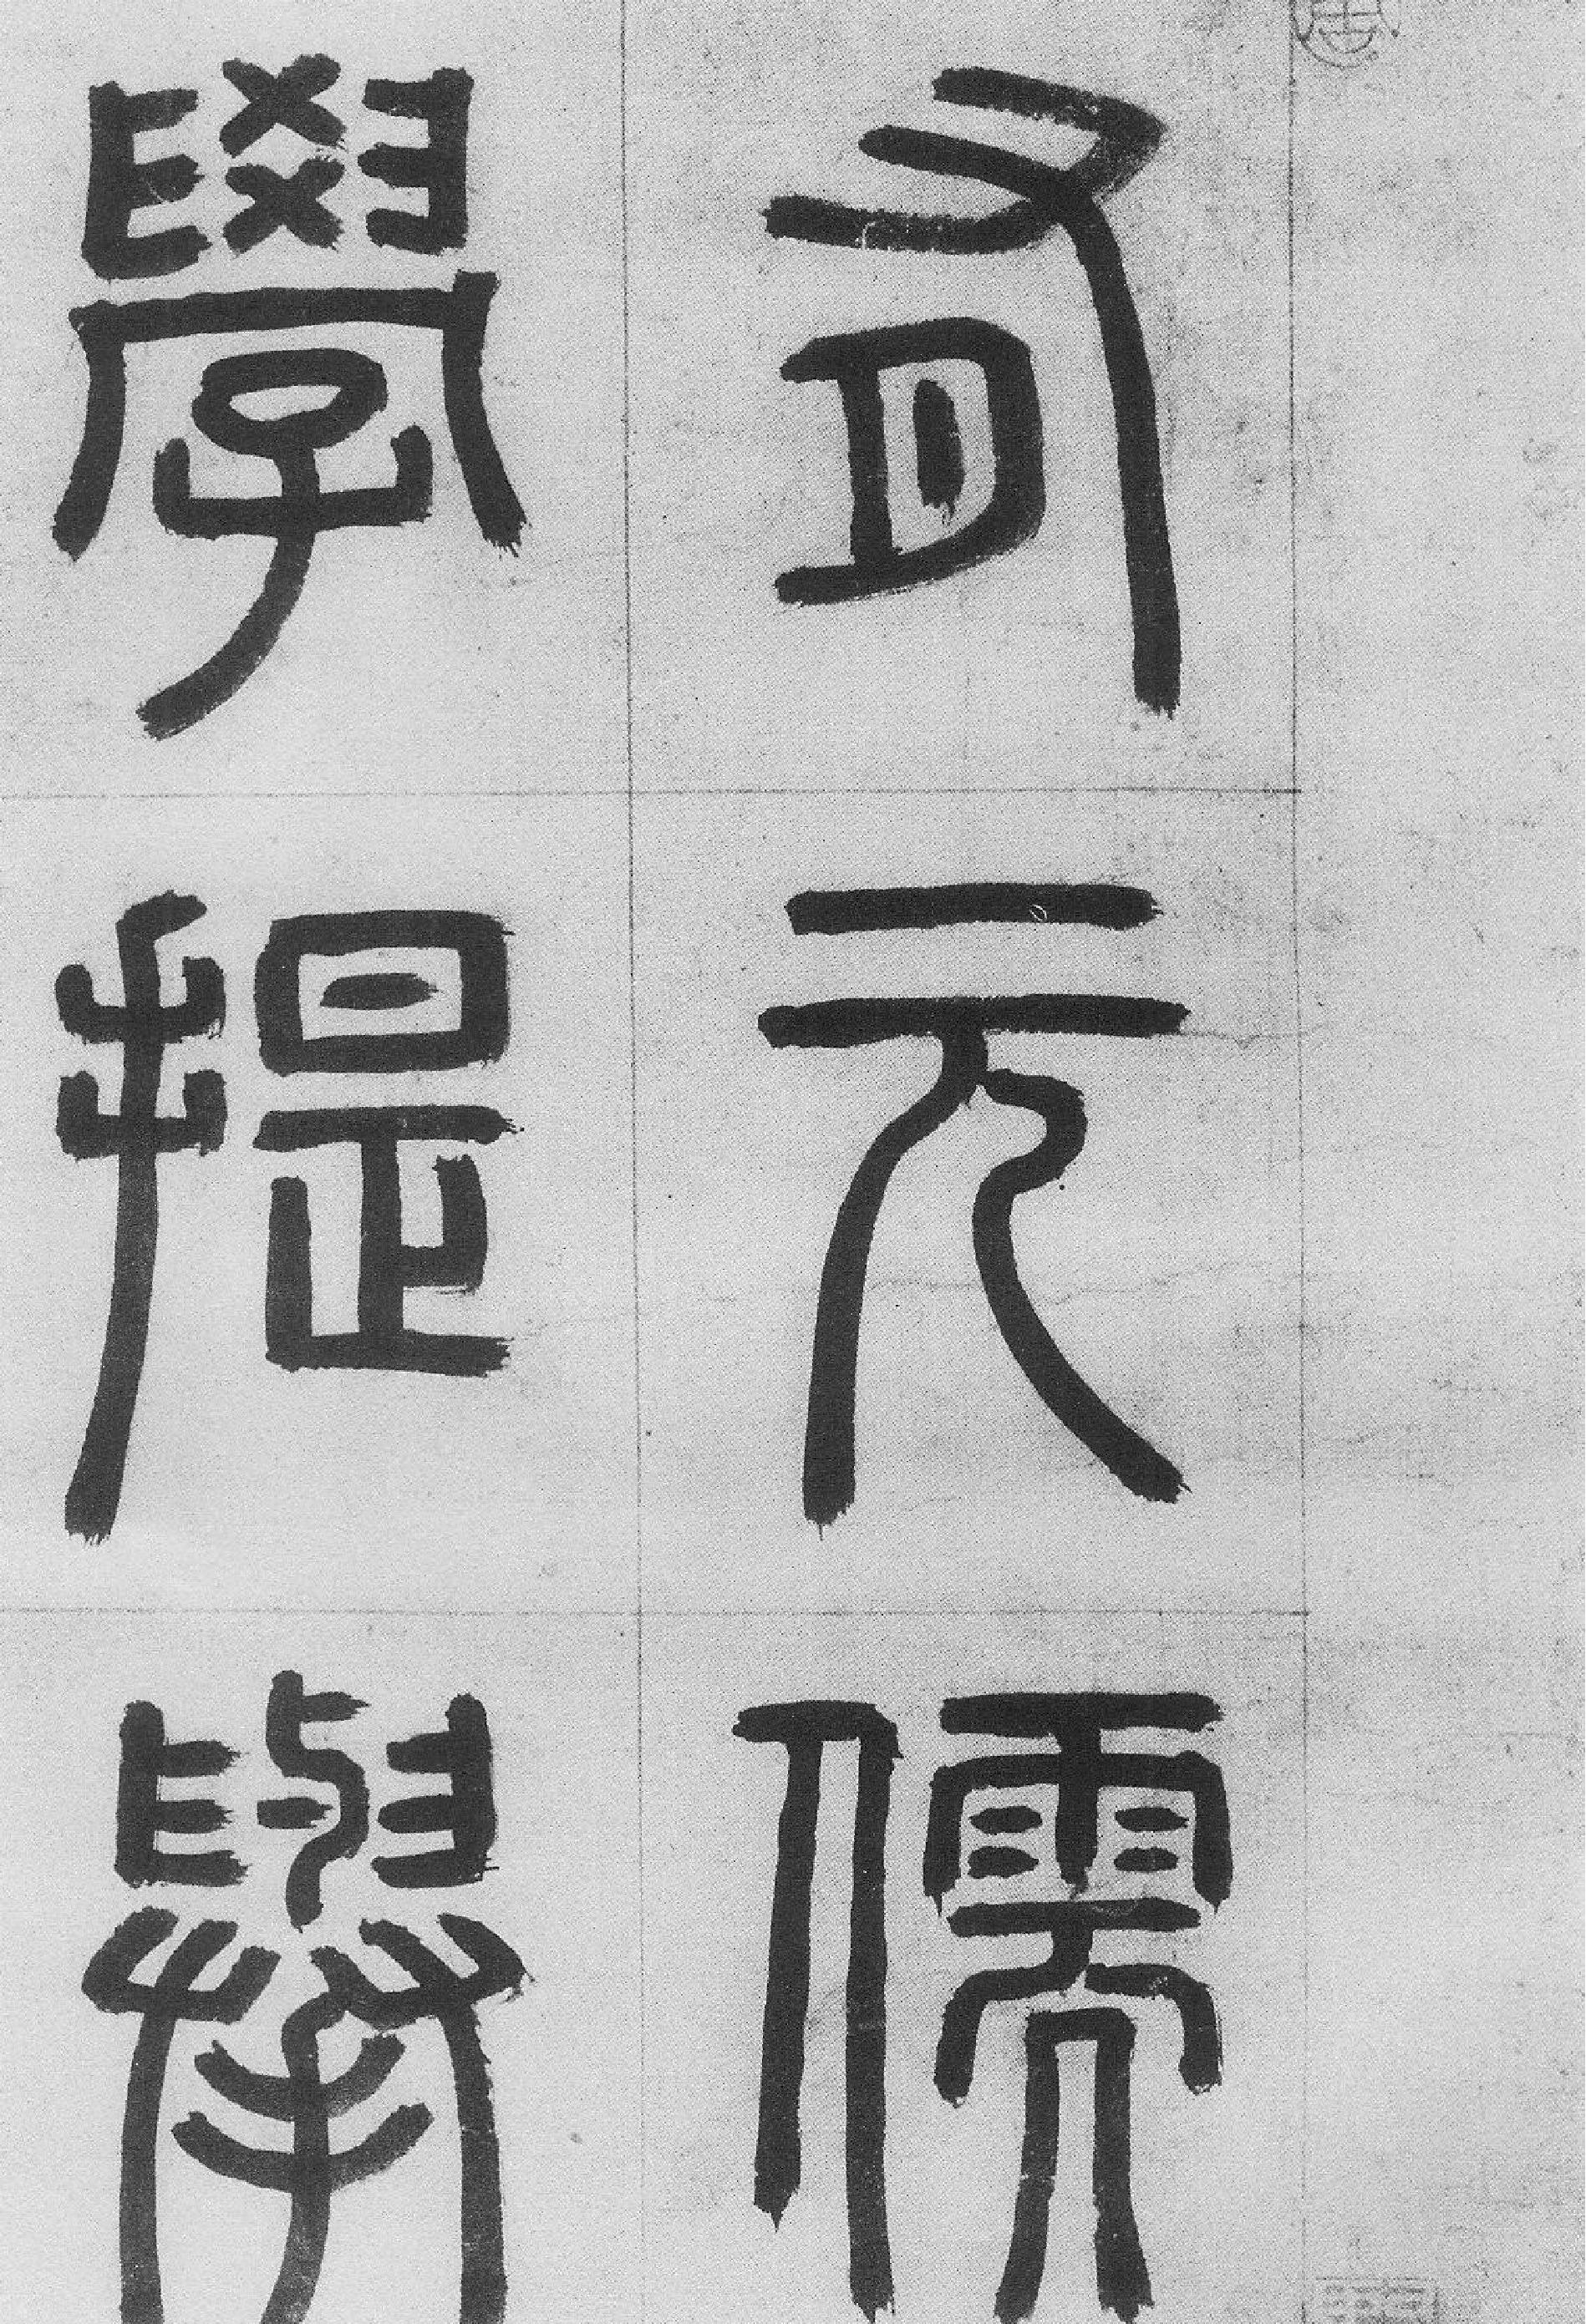 有元儒
學提舉